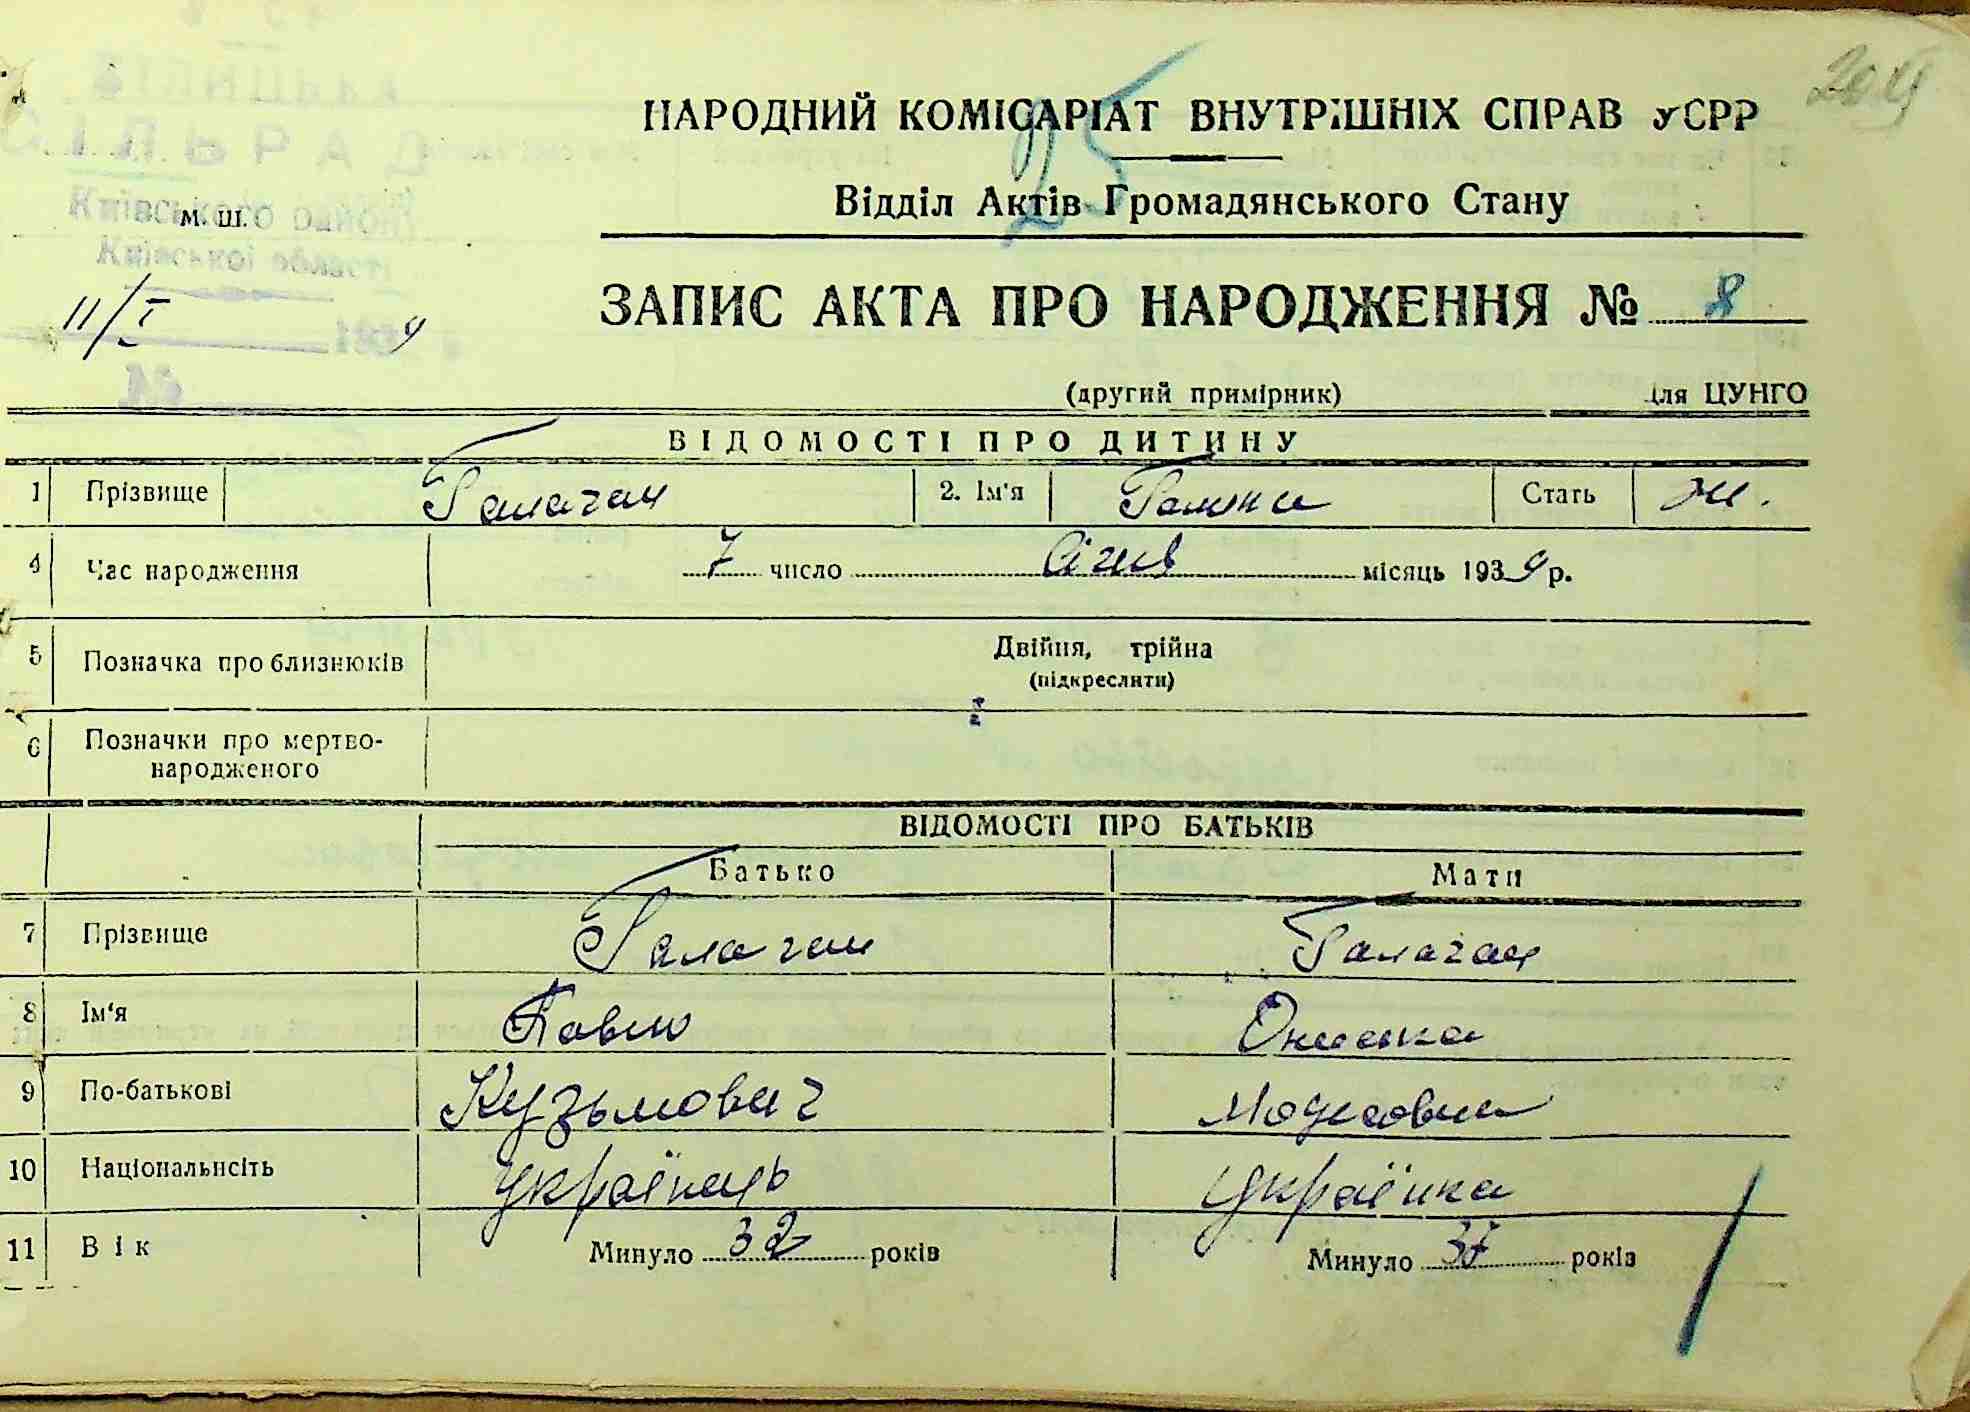 НАРОДНИЙ КОМІСАРІАТ ВНУТРІШНІХ СПРАВ УСРР
25
Відділ Актів Громадянського Стану
м. ш.
Київського району
Київської області
11/I 1939
ЗАПИС АКТА ПРО НАРОДЖЕННЯ № 8
(другий примірник) Для ЦУНГО
ВІДОМОСТІ ПРО ДИТИНУ
1 Прізвище Галаган 2. Ім'я Галина Стать ж.
4 Час народження 7 число січня місяць 1939 р.
5 Позначка про близнюків Двійня, трійна
(підкреслити)
6 Позначки про мертво-
народженого
ВІДОМОСТІ ПРО БАТЬКІВ
Батько Мати
7 Прізвище Галаган Галаган
8 Ім'я Павло Ониська
9 По-батькові Кузьмович
10 Національність українець українка
11 Вік Минуло 32 років Минуло 37 років